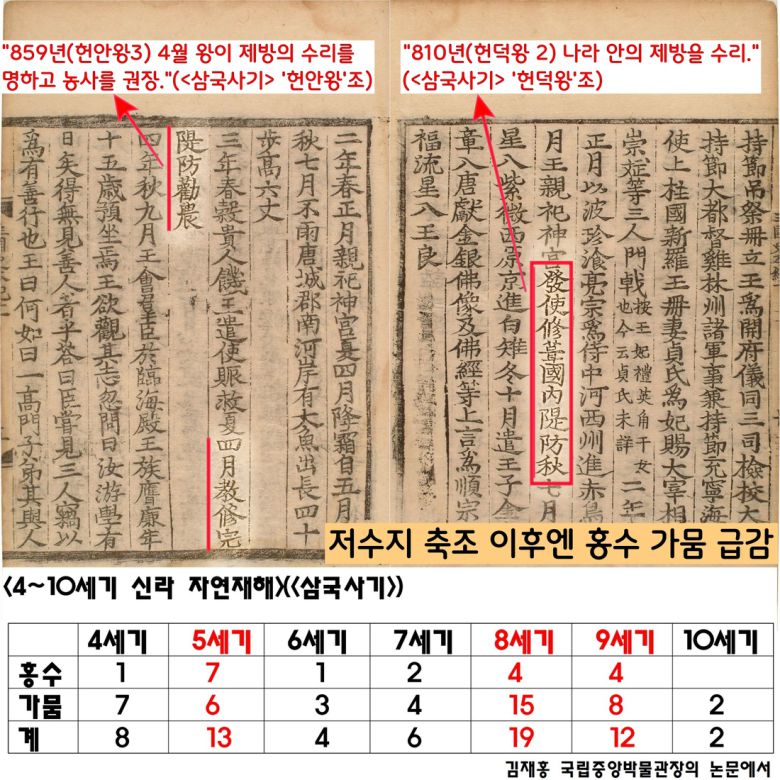 "859년(헌안왕3) 4월 왕이 제방의 수리를
명하고 농사를 권장."(<삼국사기> '헌안왕'조)
"810년(헌덕왕 2) 나라 안의 제방을 수리."
(<삼국사기> '헌덕왕'조)
持節吊祭冊立王爲開府儀同三司檢校大
持節大都督雞林州諸軍事兼持節充寧海
使上柱國新羅王冊妻貞氏爲妃賜大宰相
崇斌等三人門戟 按王妃禮英角干女 也今云貞氏未詳 二年
正月以波珍湌亮宗爲侍中河西州進赤烏
月王親祀神宮發使修葺國內隄防秋七月
星入紫微西原京進白雉冬十月遣王子金
章入唐獻金銀佛像及佛經等上言爲順宗
福流星入王良
二年春正月親祀神宮夏四月降霜自五月
秋七月不雨唐城郡南河岸有大魚出長四十
步高六丈
三年春穀貴人饑王遣使賑救夏四月敎修完
隄防勸農
四年秋九月王會羣臣於臨海殿王族膺廉年
十五歲預坐焉王欲觀其志忽問曰汝游學有
日矣得無見善人者乎答曰臣嘗見三人竊以
爲有善行也王曰何如曰一高門子弟其與人
저수지 축조 이후엔 홍수 가뭄 급감
<4~10세기 신라 자연재해>(<삼국사기>)
4세기 5세기 6세기 7세기 8세기 9세기 10세기
홍수 1 7 1 2 4 4
가뭄 7 6 3 4 15 8 2
계 8 13 4 6 19 12 2
김재홍 국립중앙박물관장의 논문에서